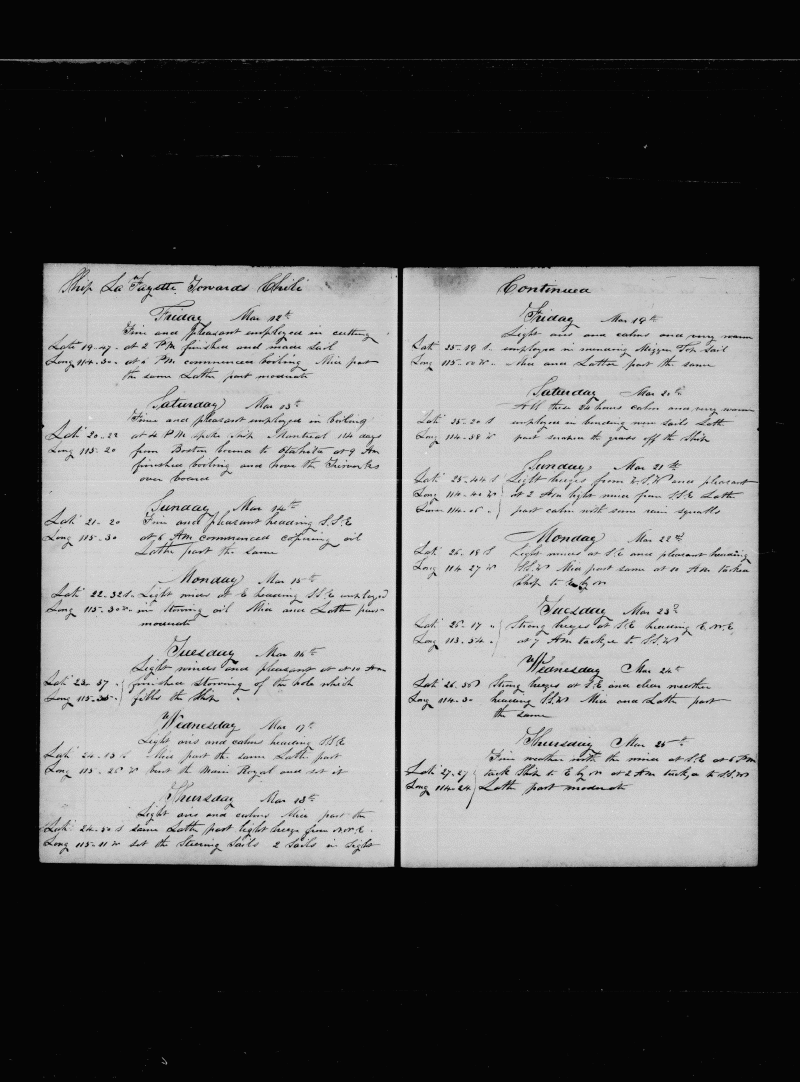 Ship La Fayette Towards Chili
Friday Mar 12th
Fine and pleasant employed in cutting
Lati 19-47 at 2 PM finished and made sail
Long 114-30 at 5 PM commenced boiling Mid part
the same Latter part moderate
Saturday Mar 13th
Fine and pleasant employed in boiling
Lati 20-22 at 4 PM spoke ship Montreal 114 days
Long 115-20 from Boston bound to Otaheita at 9 Am
finished boiling and hove the Tryworks
over board
Sunday Mar 14th
Lati 21-20 Fine and pleasant heading S.S.E
Long 115-30 at 6 Am commenced coopering oil
Latter part the same
Monday Mar 15th
Lati 22-32 S. Light winds at E heading SSE employed
Long 115-30 W in stowing oil Mid and Latter part
moderate
Tuesday Mar 16th
Light winds and pleasant at 10 Am
Lati 23-37 finished stowing of the hole which
Long 115-35 fills the Ship
Wednesday Mar 17th
Light airs and calms heading SSE
Lati 24-13 S Mid part the same Latter part
Long 115-25 W bent the Main Royal and set it
Thursday Mar 18th
Light airs and calms Mid part the
Lati 24-50 S same Latter part light breeze from N.N.E.
Long 115-11 W set the Steering Sails 2 Sails in sight
Continued
Friday Mar 19th
Light airs and calms and very warm
Lati 25-19 S. employed in mending Mizzen Top Sail
Long 115-00 W Mid and Latter part the same
Saturday Mar 20th
All these 24 hours calm and very warm
Lati 25-20 S employed in bending new Sails Latter
Long 114-58 W part the grass off the Ship
Sunday Mar 21th
Lati 25-44 S Light breezes from E.S.W and pleasant
Long 114-40 W at 2 Am light winds from S.S.E Latter
114-05 part calm with some rain squalls
Monday Mar 22d
Lati 26-18 S Light winds at S.E and pleasant heading
Long 114-27 W S.S.W Mid part same at 10 Am tacked
Ship to E by N
Tuesday Mar 23d
Lati 26-17 Strong breezes at S.E heading E.N.E
Long 113-54 at 7 Am tacked to S.S.W
Wednesday Mar 24th
Lati 26-36 strong breezes at S.E. and clear weather
Long 114-30 heading S.S.W Mid and Latter part
the same
Thursday Mar 25th
Fine weather with the wind at S.E at 6 PM
Lati 27-27 tack Ship to E by N at 2 Am tacked to S.S.W
Long 114-24 Latter part moderate